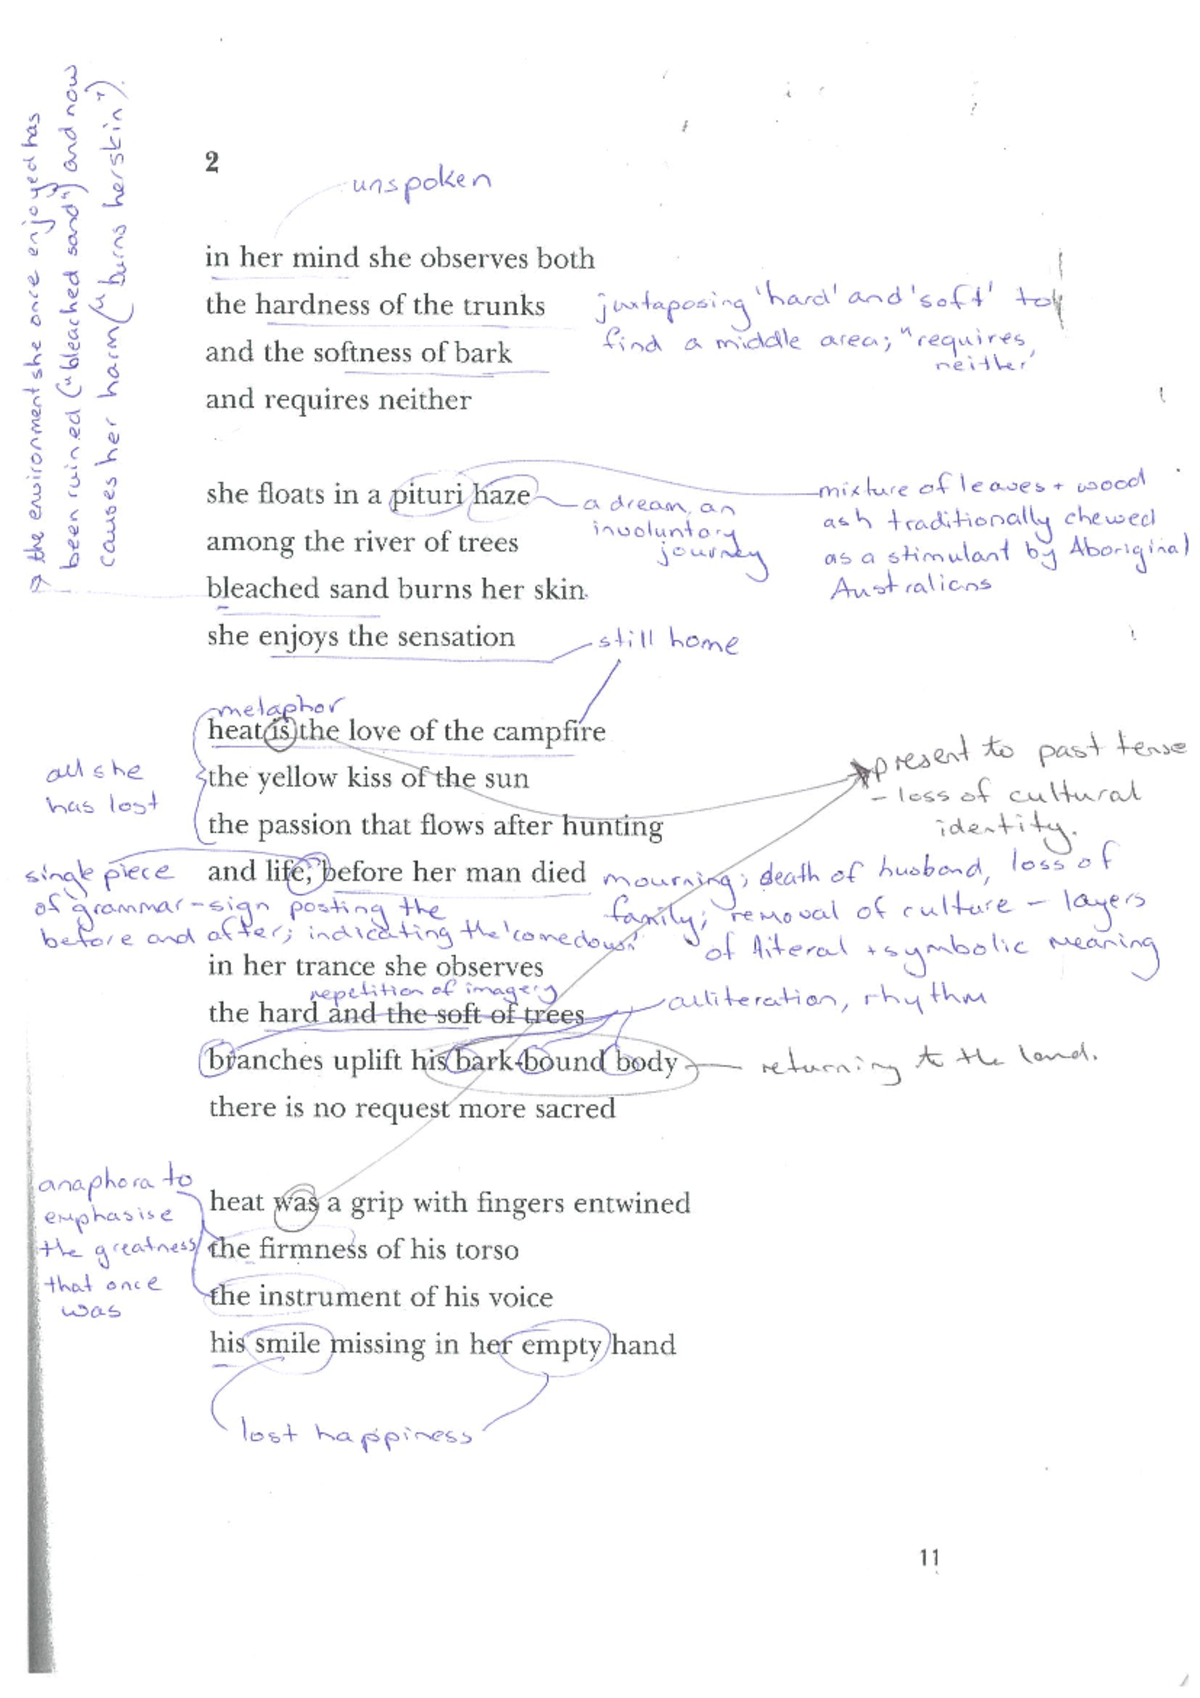 → the environment she once enjoyed has
been ruined ("bleached sand") and now
causes her harm ("burns her skin").
2
unspoken
in her mind she observes both
the hardness of the trunks
juxtaposing 'hard' and 'soft' to
and the softness of bark
find a middle area; "requires
neither'
and requires neither
she floats in a pituri haze
a dream, an
involuntory
journey
mixture of leaves + wood
ash traditionally chewed
as a stimulant by Aboriginal
Australians
among the river of trees
bleached sand burns her skin
she enjoys the sensation
still home
metaphor
heat is the love of the campfire
the yellow kiss of the sun
the passion that flows after hunting
all she
has lost
present to past tense
- loss of cultural
identity.
and life, before her man died
single piece
of grammar - sign posting the
before and after; indicating the 'comedown'
mourning; death of husband, loss of
family; removal of culture - layers
of literal + symbolic meaning
in her trance she observes
repetition of imagery
the hard and the soft of trees
alliteration, rhythm
branches uplift his bark-bound body
returning to the land.
there is no request more sacred
anaphora to
emphasise
the greatness
that once
was
heat was a grip with fingers entwined
the firmness of his torso
the instrument of his voice
his smile missing in her empty hand
lost happiness
11